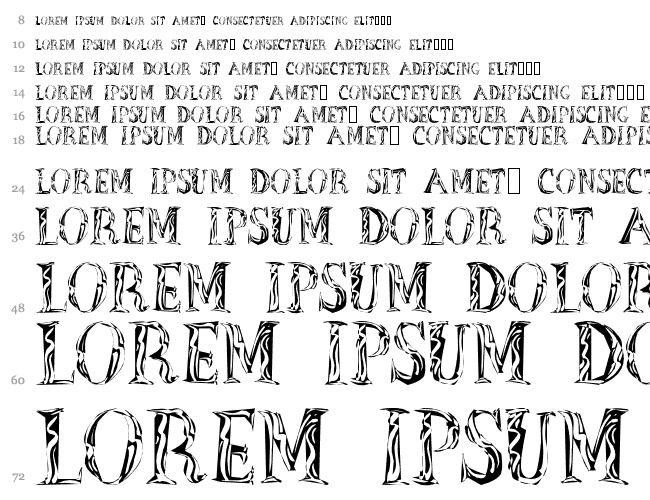 8 LOREM IPSUM DOLOR SIT AMET□ CONSECTETUER ADIPISCING ELIT□□□
10 LOREM IPSUM DOLOR SIT AMET□ CONSECTETUER ADIPISCING ELIT□□□
12 LOREM IPSUM DOLOR SIT AMET□ CONSECTETUER ADIPISCING ELIT□□□
14 LOREM IPSUM DOLOR SIT AMET□ CONSECTETUER ADIPISCING ELIT□□□
16 LOREM IPSUM DOLOR SIT AMET□ CONSECTETUER ADIPISCING E
18 LOREM IPSUM DOLOR SIT AMET□ CONSECTETUER ADIPIS
24 LOREM IPSUM DOLOR SIT AMET□ CONSECT
36 LOREM IPSUM DOLOR SIT A
48 LOREM IPSUM DOLOR
60 LOREM IPSUM DO
72 LOREM IPSUM